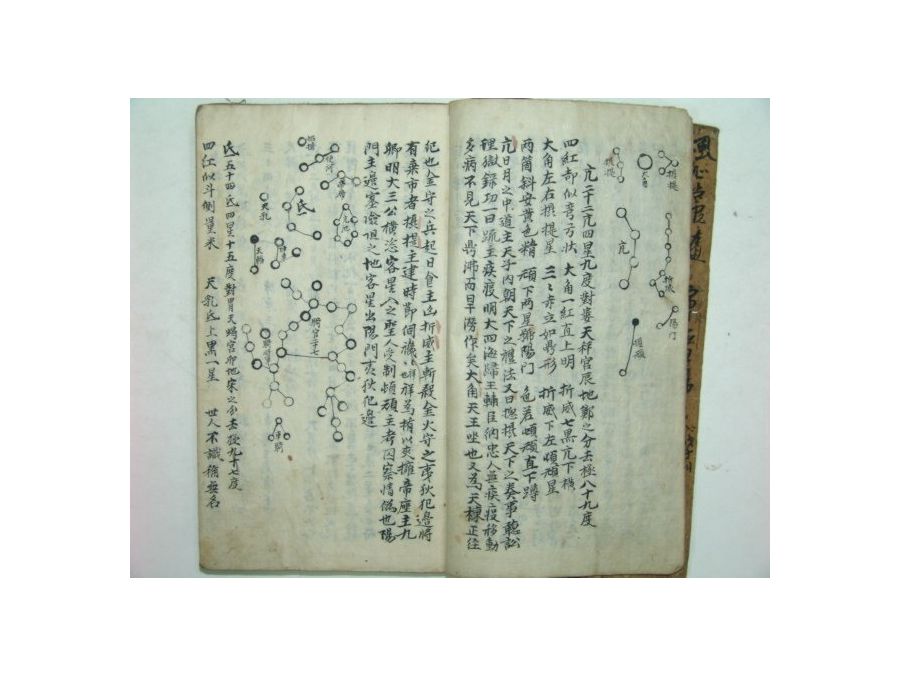 摂提
大角
摂提
亢
折威
陽門
頓頑
亢二十二亢四星九度對婁天秤宮辰地鄭之分去極八十九度
四紅却似弯弓状 大角一紅直上明 折威七黑亢下横
大角左右摂提星 三〻赤立如鼎形 折威下左頓頑星
两箇斜安黄色精 頑下两星號陽門 色若頓頑直下蹲
亢日月之中道主天子内朝天下之禮法又曰摠摂天下之奏事聽訟
理獄録功一曰疏主疾疫明大四海歸王輔臣納忠人無疾疫移動
多病不見天下鼎沸而旱澇作矣大角天王坐也又爲天棟正徑
紀也金守之兵起日食主凶折威主斬殺金火守之夷狄犯邊將
有棄市者摂提主建時節伺禨祥也祥爲楯以夾擁帝座主九
卿明大三公横恣客星入之聖人受制頓頑主考囚察情僞也陽
門主邊塞險阻之地客星出陽門夷狄犯邊
招摇
帝席
亢池
氐
天乳
騎官二十七
氐五十四氐四星十五度對胃天蝎宮卯地宋之分去極九十七度
四红似斗側量米 天乳氐上黑一星 世人不識稱無名